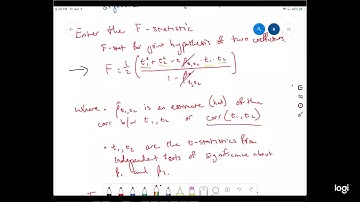 Enter the F-statistic
F-stat for joint hypothesis of two coefficients
→ F = 1/2 ( (t₁² + t₂² - 2 ρ̂t₁,t₂ t₁ t₂) / (1 - ρ̂²t₁,t₂) )
where · ρ̂t₁,t₂ is an estimate (hat) of the
corr b/w t₁, t₂ or corr(t₁,t₂)
· t₁, t₂ are the t-statistics from
independent tests of significance about
β₁ and β₂.
logi